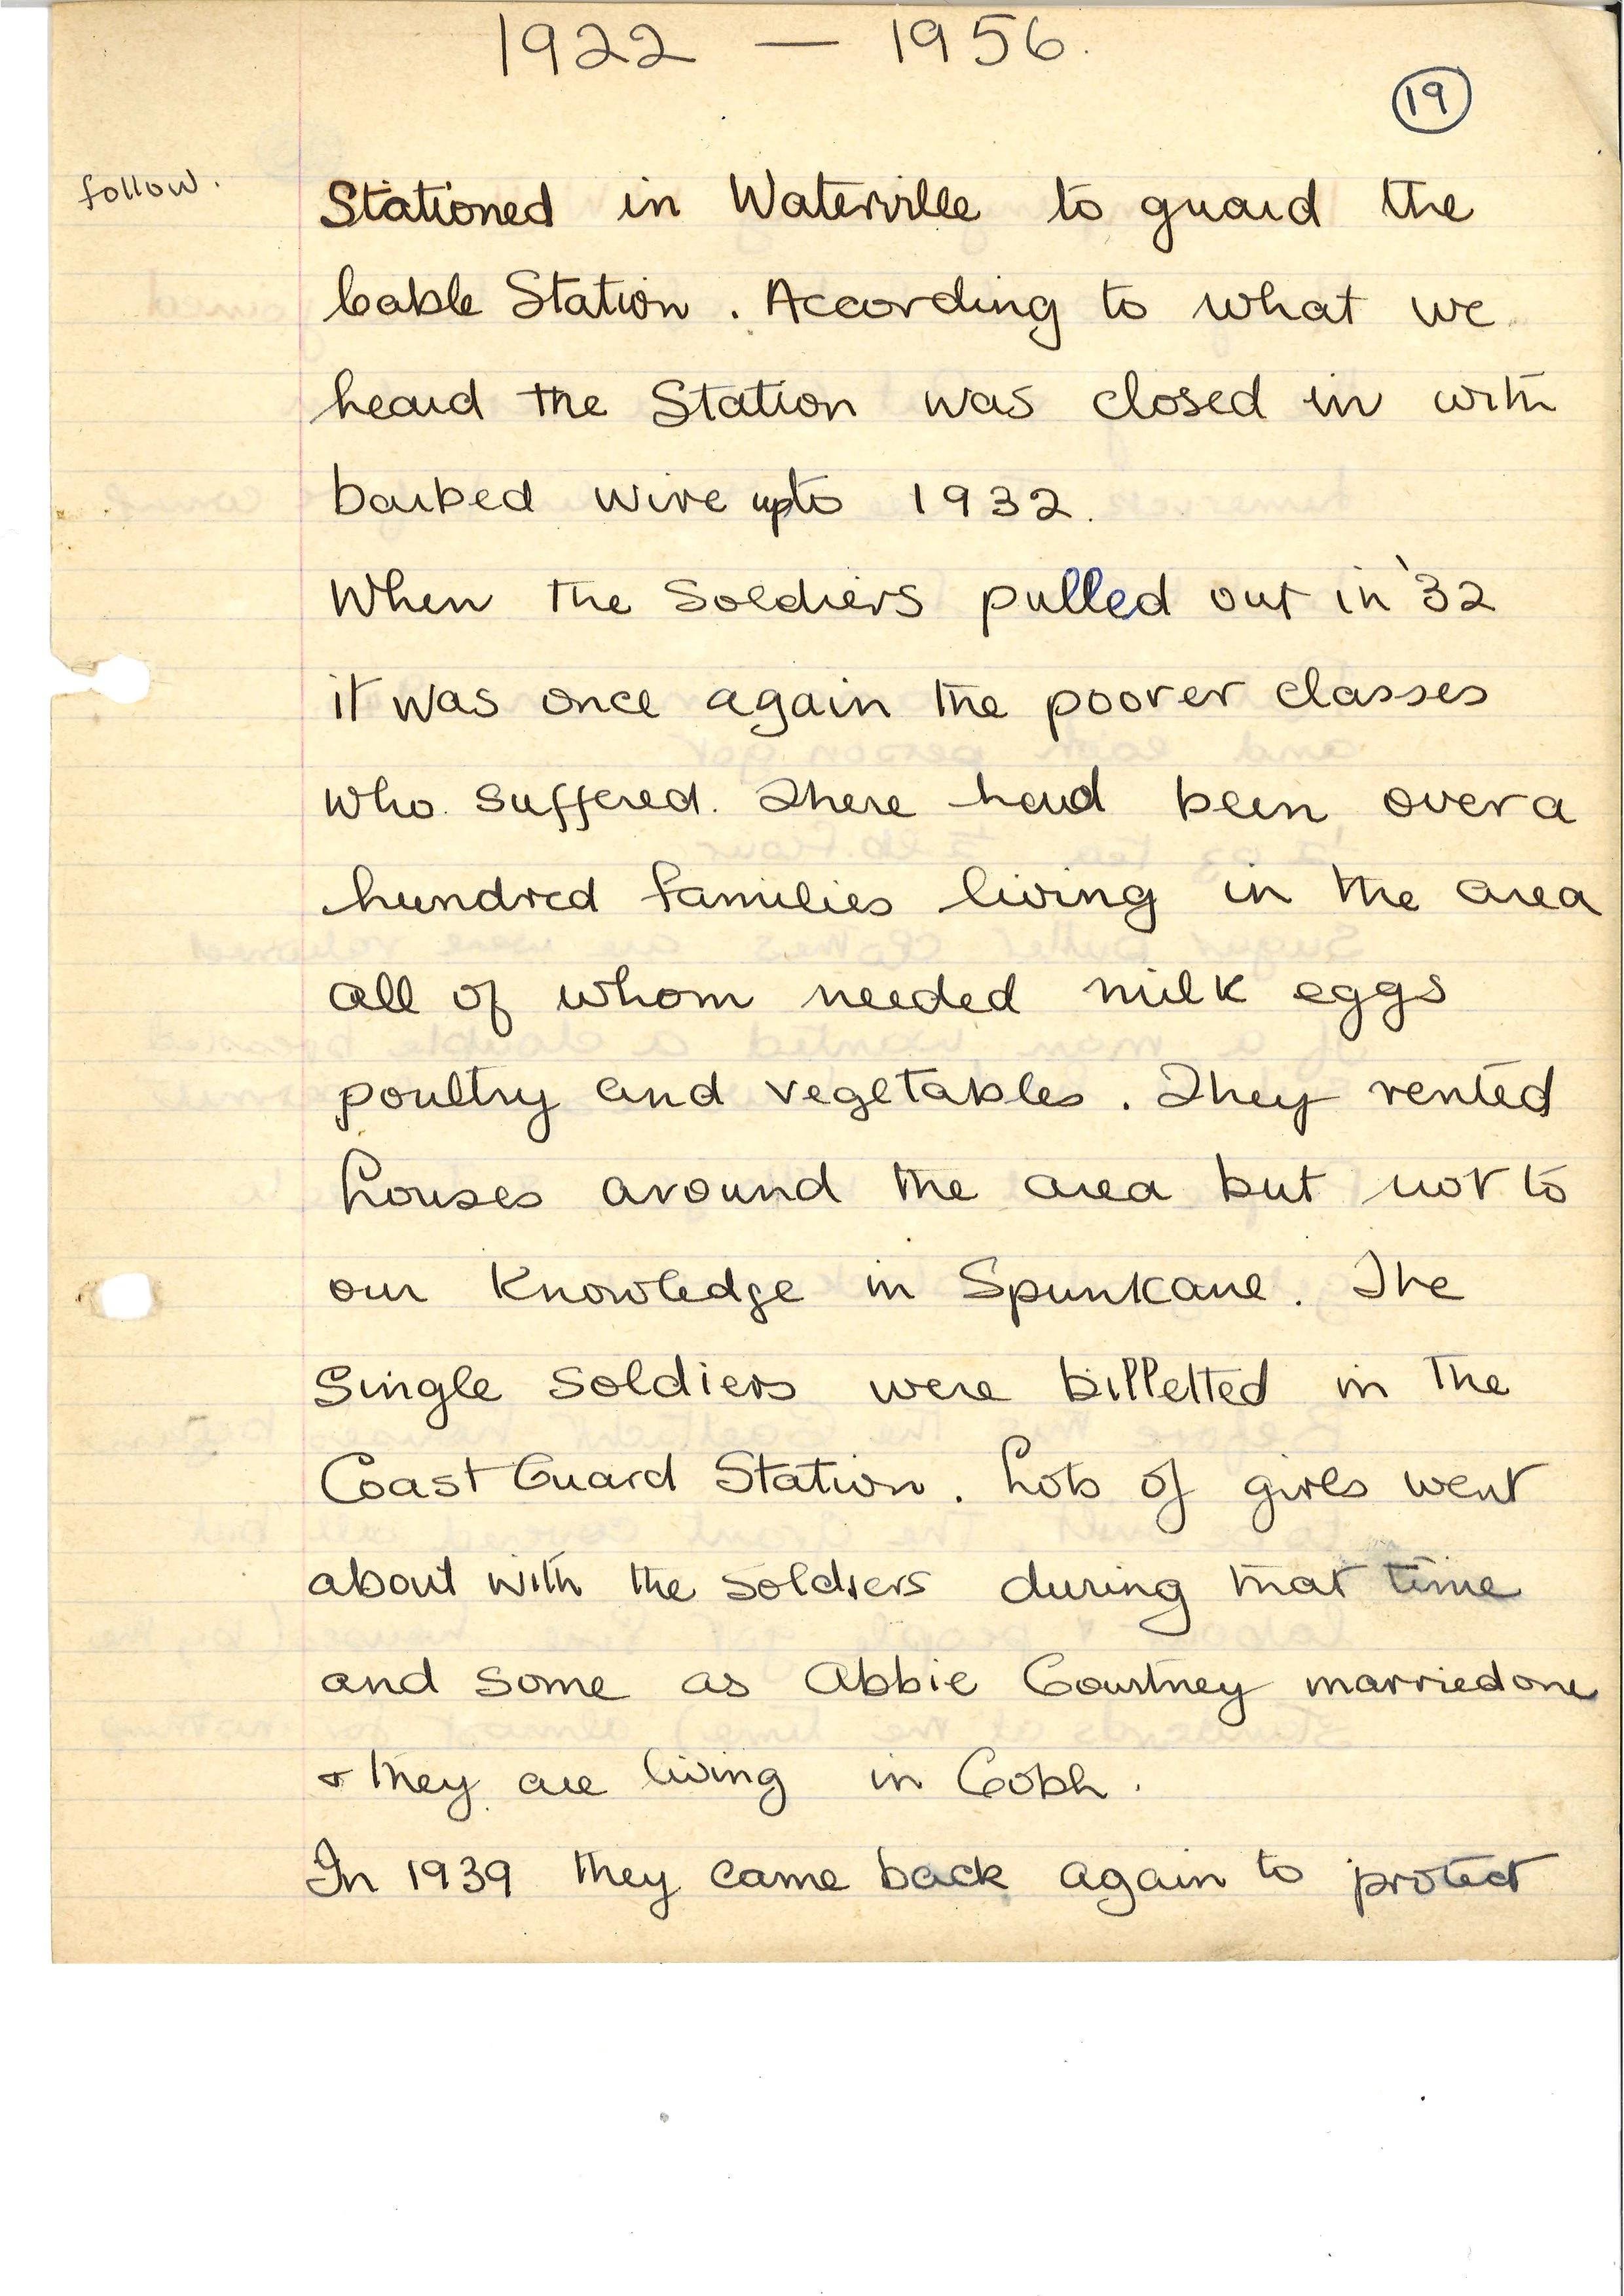 1922 — 1956.
19
follow.
Stationed in Waterville to guard the
Cable Station. According to what we
heard the Station was closed in with
barbed wire upto 1932.
When the Soldiers pulled out in '32
it was once again the poorer classes
who suffered. There had been over a
hundred families living in the area
all of whom needed milk eggs
poultry and vegetables. They rented
houses around the area but not to
our knowledge in Spunkane. The
Single soldiers were billetted in the
Coast Guard Station. Lots of girls went
about with the soldiers during that time
and some as Abbie Courtney married one
& they are living in Cobh.
In 1939 they came back again to protect